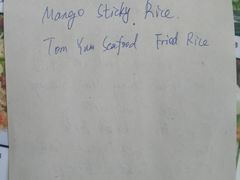 Mango Sticky Rice.
Tom Yum Seafood Fried Rice